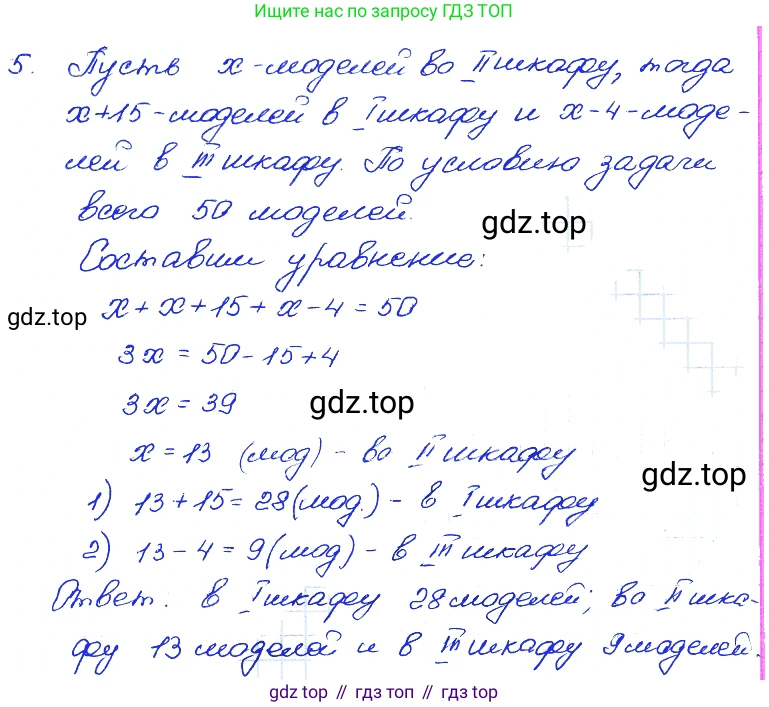 Ищите нас по запросу ГДЗ ТОП
5. Пусть x-моделей во II шкафу, тогда
x+15-моделей в I шкафу и x-4-моде-
лей в III шкафу. По условию задачи
всего 50 моделей.
gdz.top
Составим уравнение:
gdz.top
x + x + 15 + x - 4 = 50
3x = 50 - 15 + 4
3x = 39
gdz.top
x = 13 (мод) - во II шкафу
gdz.top
1) 13 + 15 = 28 (мод.) - в I шкафу
2) 13 - 4 = 9 (мод) - в III шкафу
Ответ: в I шкафу 28 моделей; во II шка-
фу 13 моделей и в III шкафу 9 моделей.
gdz top // гдз топ // gdz top